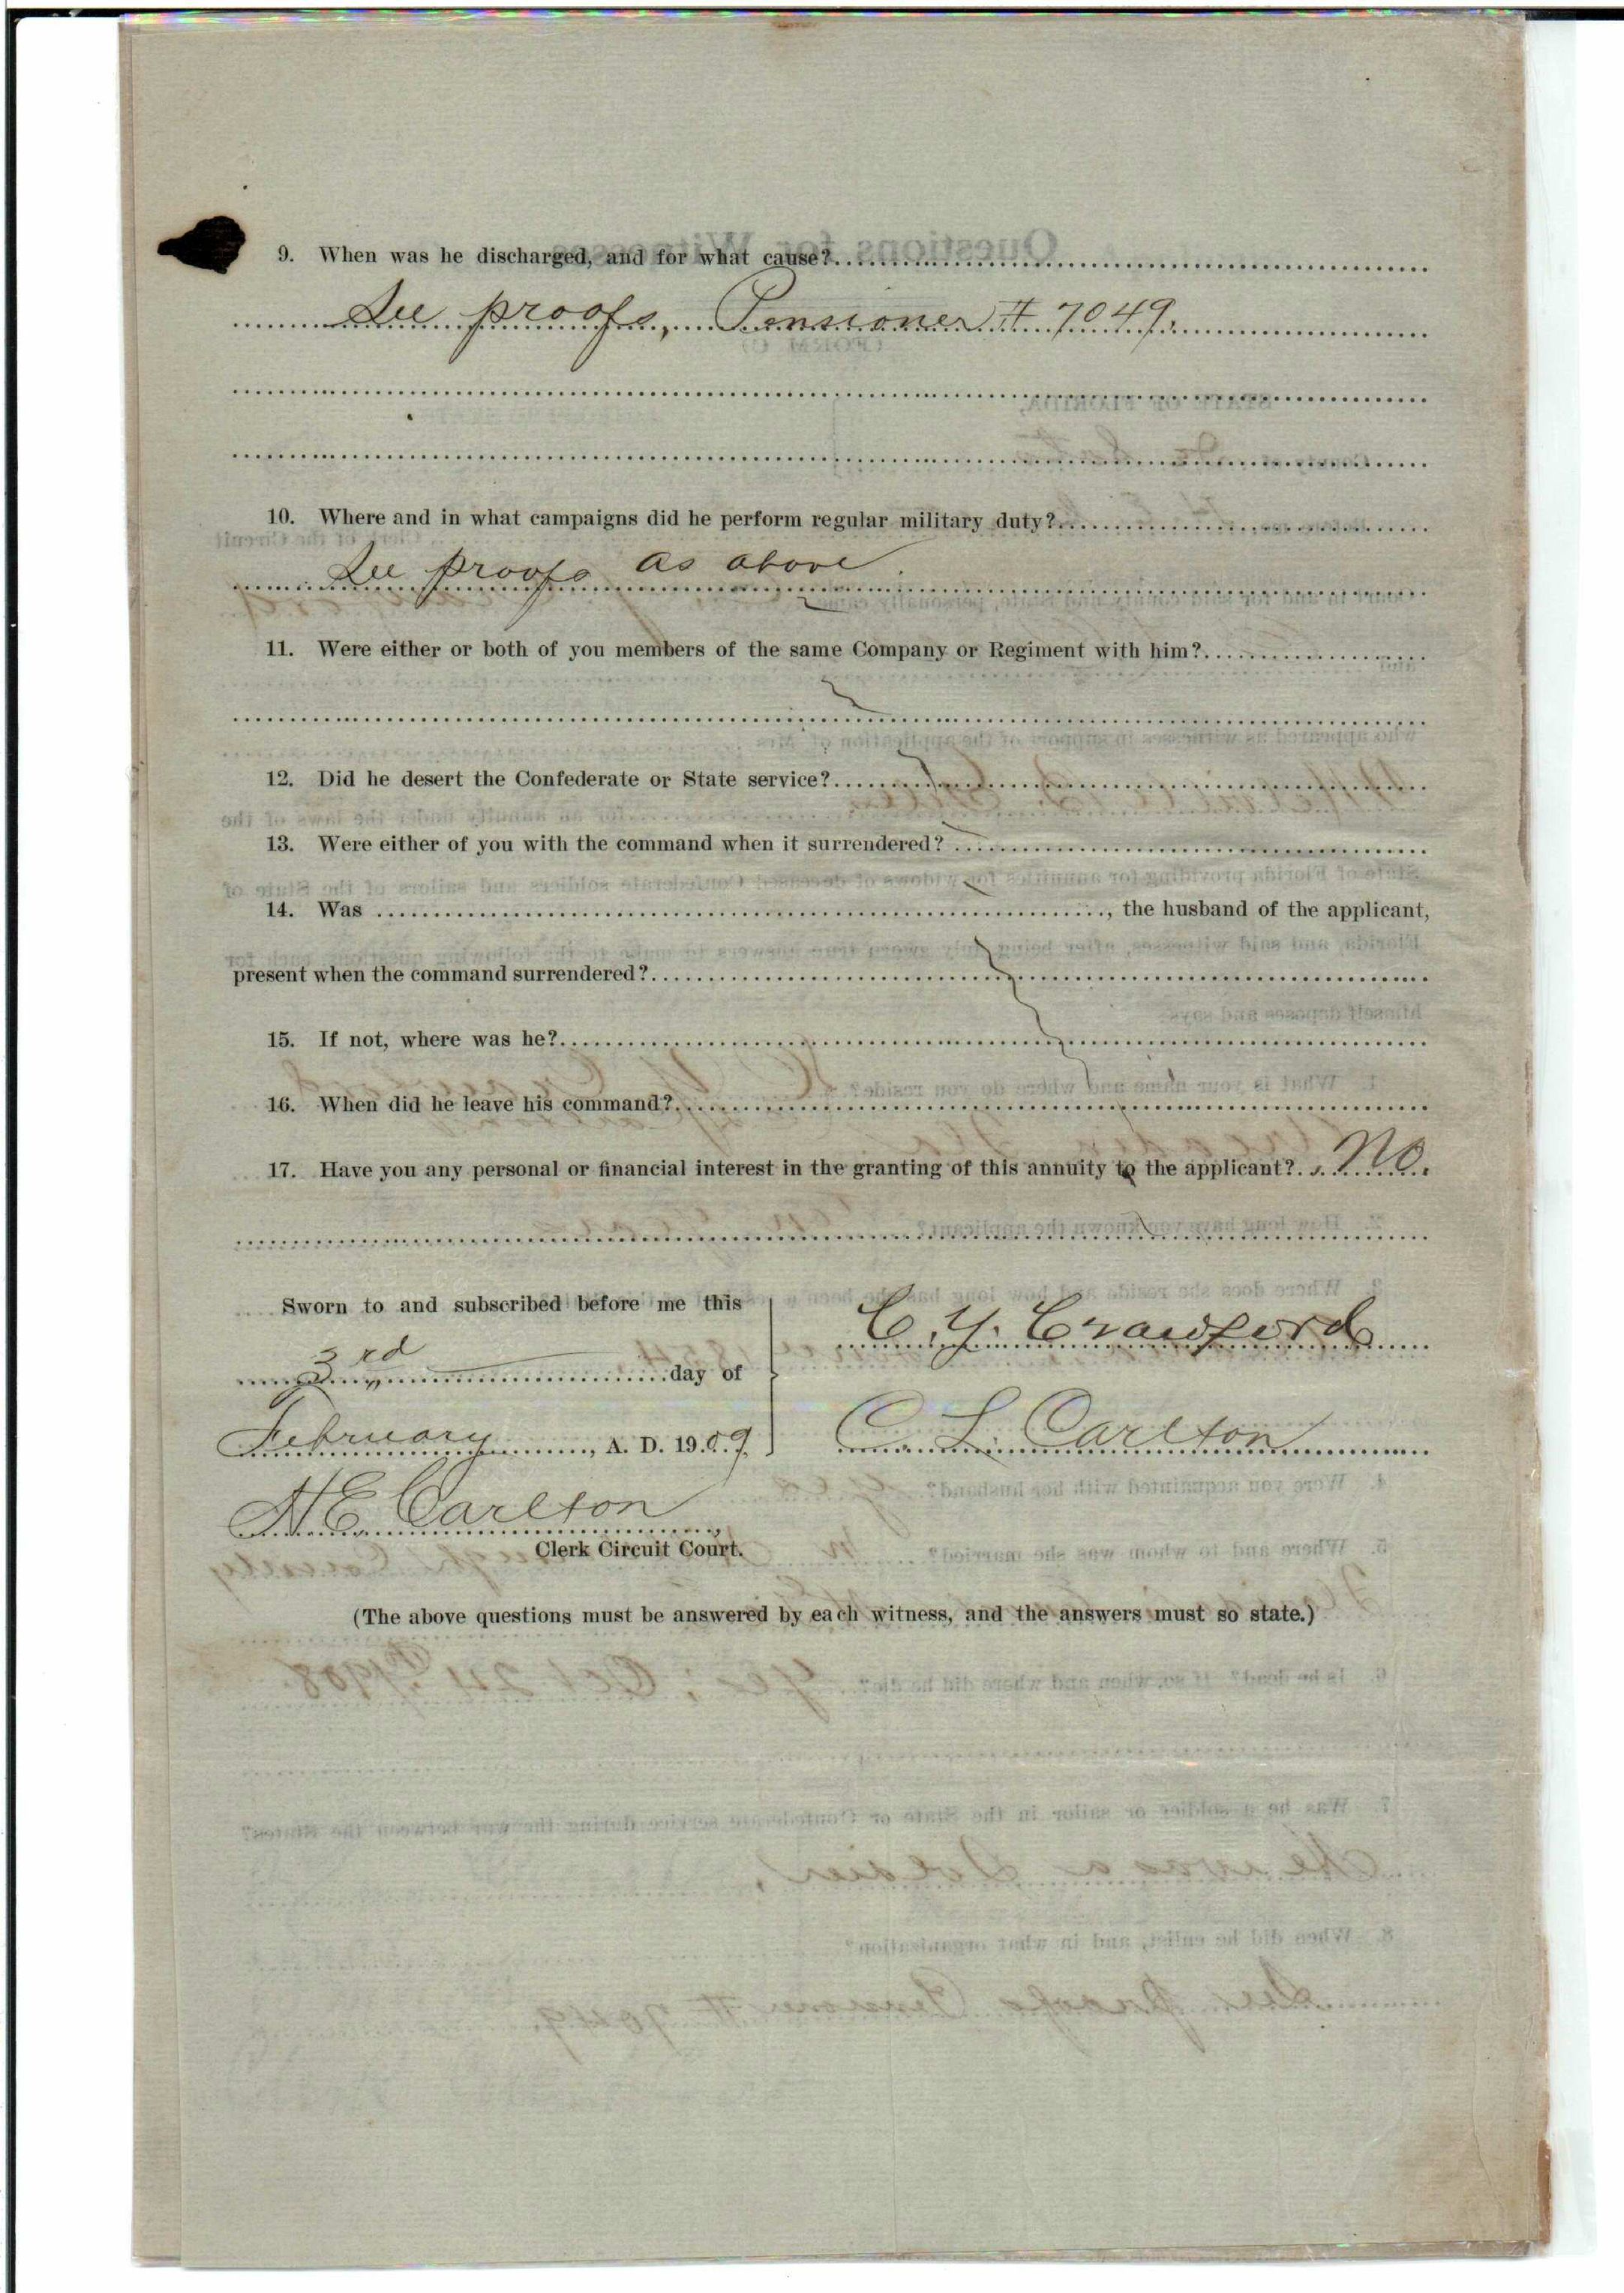 9. When was he discharged, and for what cause?
See proofs, Pensioner # 7049.
10. Where and in what campaigns did he perform regular military duty?
See proofs as above.
11. Were either or both of you members of the same Company or Regiment with him?
12. Did he desert the Confederate or State service?
13. Were either of you with the command when it surrendered?
14. Was , the husband of the applicant,
present when the command surrendered?
15. If not, where was he?
16. When did he leave his command?
17. Have you any personal or financial interest in the granting of this annuity to the applicant? No.
Sworn to and subscribed before me this
C. Y. Crawford
3rd day of
February, A. D. 1909
C. L. Carlton
H E Carlton
Clerk Circuit Court.
(The above questions must be answered by each witness, and the answers must so state.)